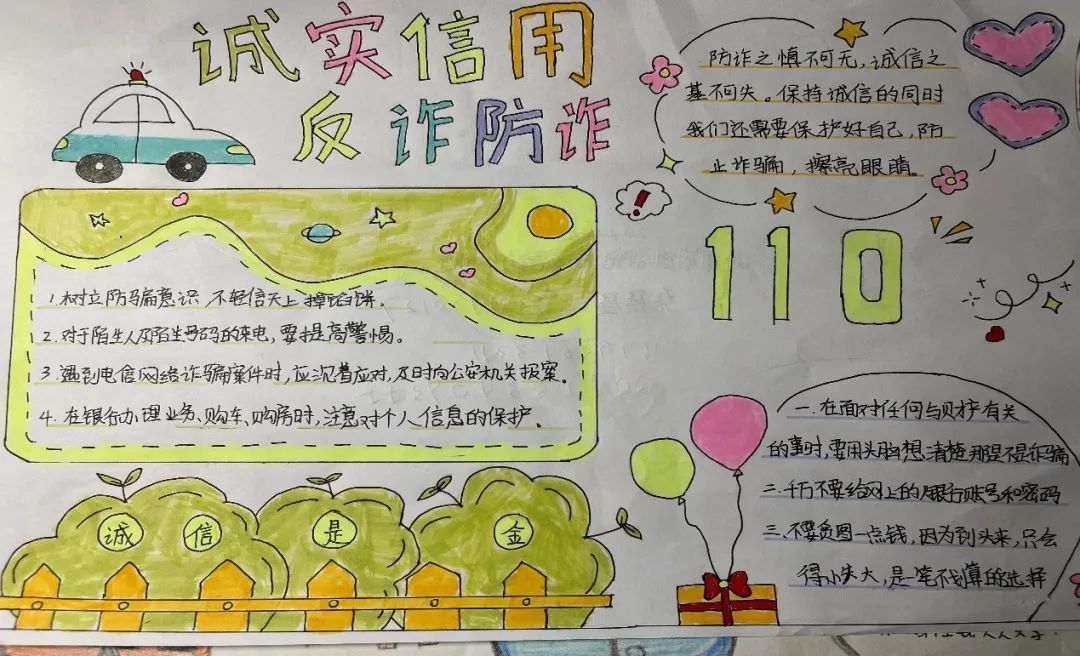 诚实信用
反诈防诈
防诈之慎不可无，诚信之
基不可失。保持诚信的同时
我们还需要保护好自己，防
止诈骗，擦亮眼睛。
110
1.树立防骗意识，不轻信天上掉馅饼。
2.对于陌生人及陌生号码的来电，要提高警惕。
3.遇到电信网络诈骗案件时，应沉着应对，及时向公安机关报案。
4.在银行办理业务、购车、购房时，注意对个人信息的保护。
一.在面对任何与财产有关
的事时，要用头脑想清楚那是不是诈骗
二.千万不要给网上的人银行账号和密码
三.不要贪图一点钱，因为到头来，只会
得小失大，是笔不划算的选择
诚信是金